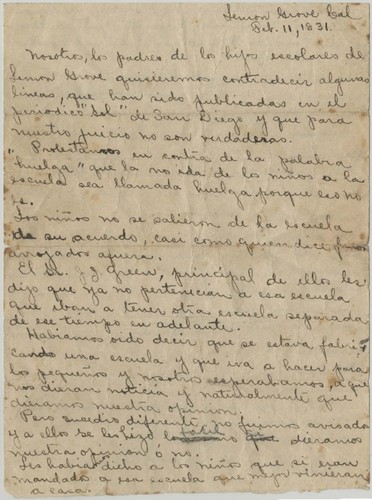 Lemon Grove Cal
Oct. 11, 1831.
Nosotros, los padres de los hijos escolares de
Lemon Grove quisieremos contradecir algunas
lineas, que han sido publicadas en el
periodico "Sol" de San Diego y que para
nuestro juicio no son verdaderas.
"Protestamos en contra de la palabra
"huelga" que la no ida de los niños a la
escuela sea llamada huelga porque eso no
es.
Los niños no se salieron de la escuela
de su acuerdo, casi como quien dice fueron
arrojados afuera.
El Sr. J. J. Green, principal de ellos les
dijo que ya no pertenician a esa escuela
que iban a tener otra escuela separada
de ese tiempo en adelante.
Habiamos oido decir que se estava fabri-
cando una escuela y que iva a hacer para
los pequeños y nosotros esperabamos a que
nos dieran noticia y naturalmente que
dieramos nuestra opinion.
Pero sucedio diferente, no fuimos avisados
y a ellos se les hizo que dieramos
nuestra opinion o no.
Les habian dicho a los niños que si eran
mandados a esa escuela que mejor vinieran
a casa.